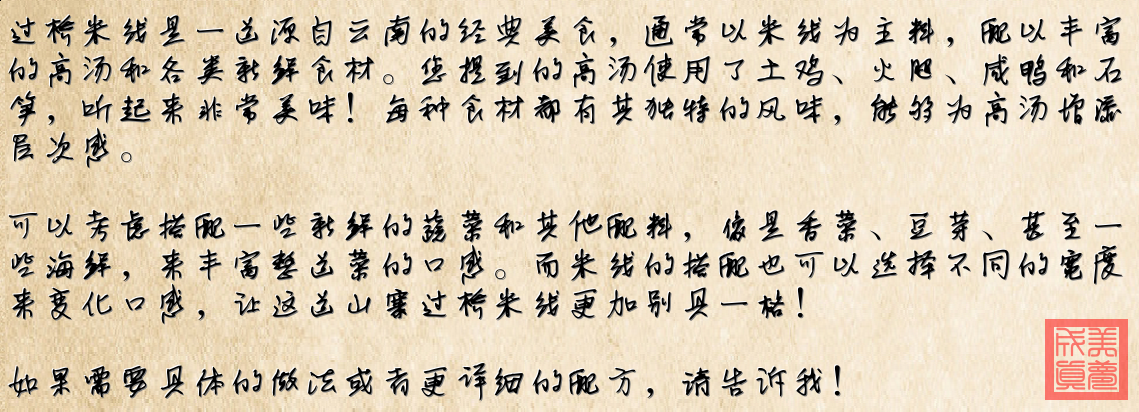 过桥米线是一道源自云南的经典美食，通常以米线为主料，配以丰富
的高汤和各类新鲜食材。您提到的高汤使用了土鸡、火腿、咸鸭和石
笋，听起来非常美味！每种食材都有其独特的风味，能够为高汤增添
层次感。
可以考虑搭配一些新鲜的蔬菜和其他配料，像是香菜、豆芽、甚至一
些海鲜，来丰富整道菜的口感。而米线的搭配也可以选择不同的宽度
来变化口感，让这道山寨过桥米线更加别具一格！
如果需要具体的做法或者更详细的配方，请告诉我！
美梦成真